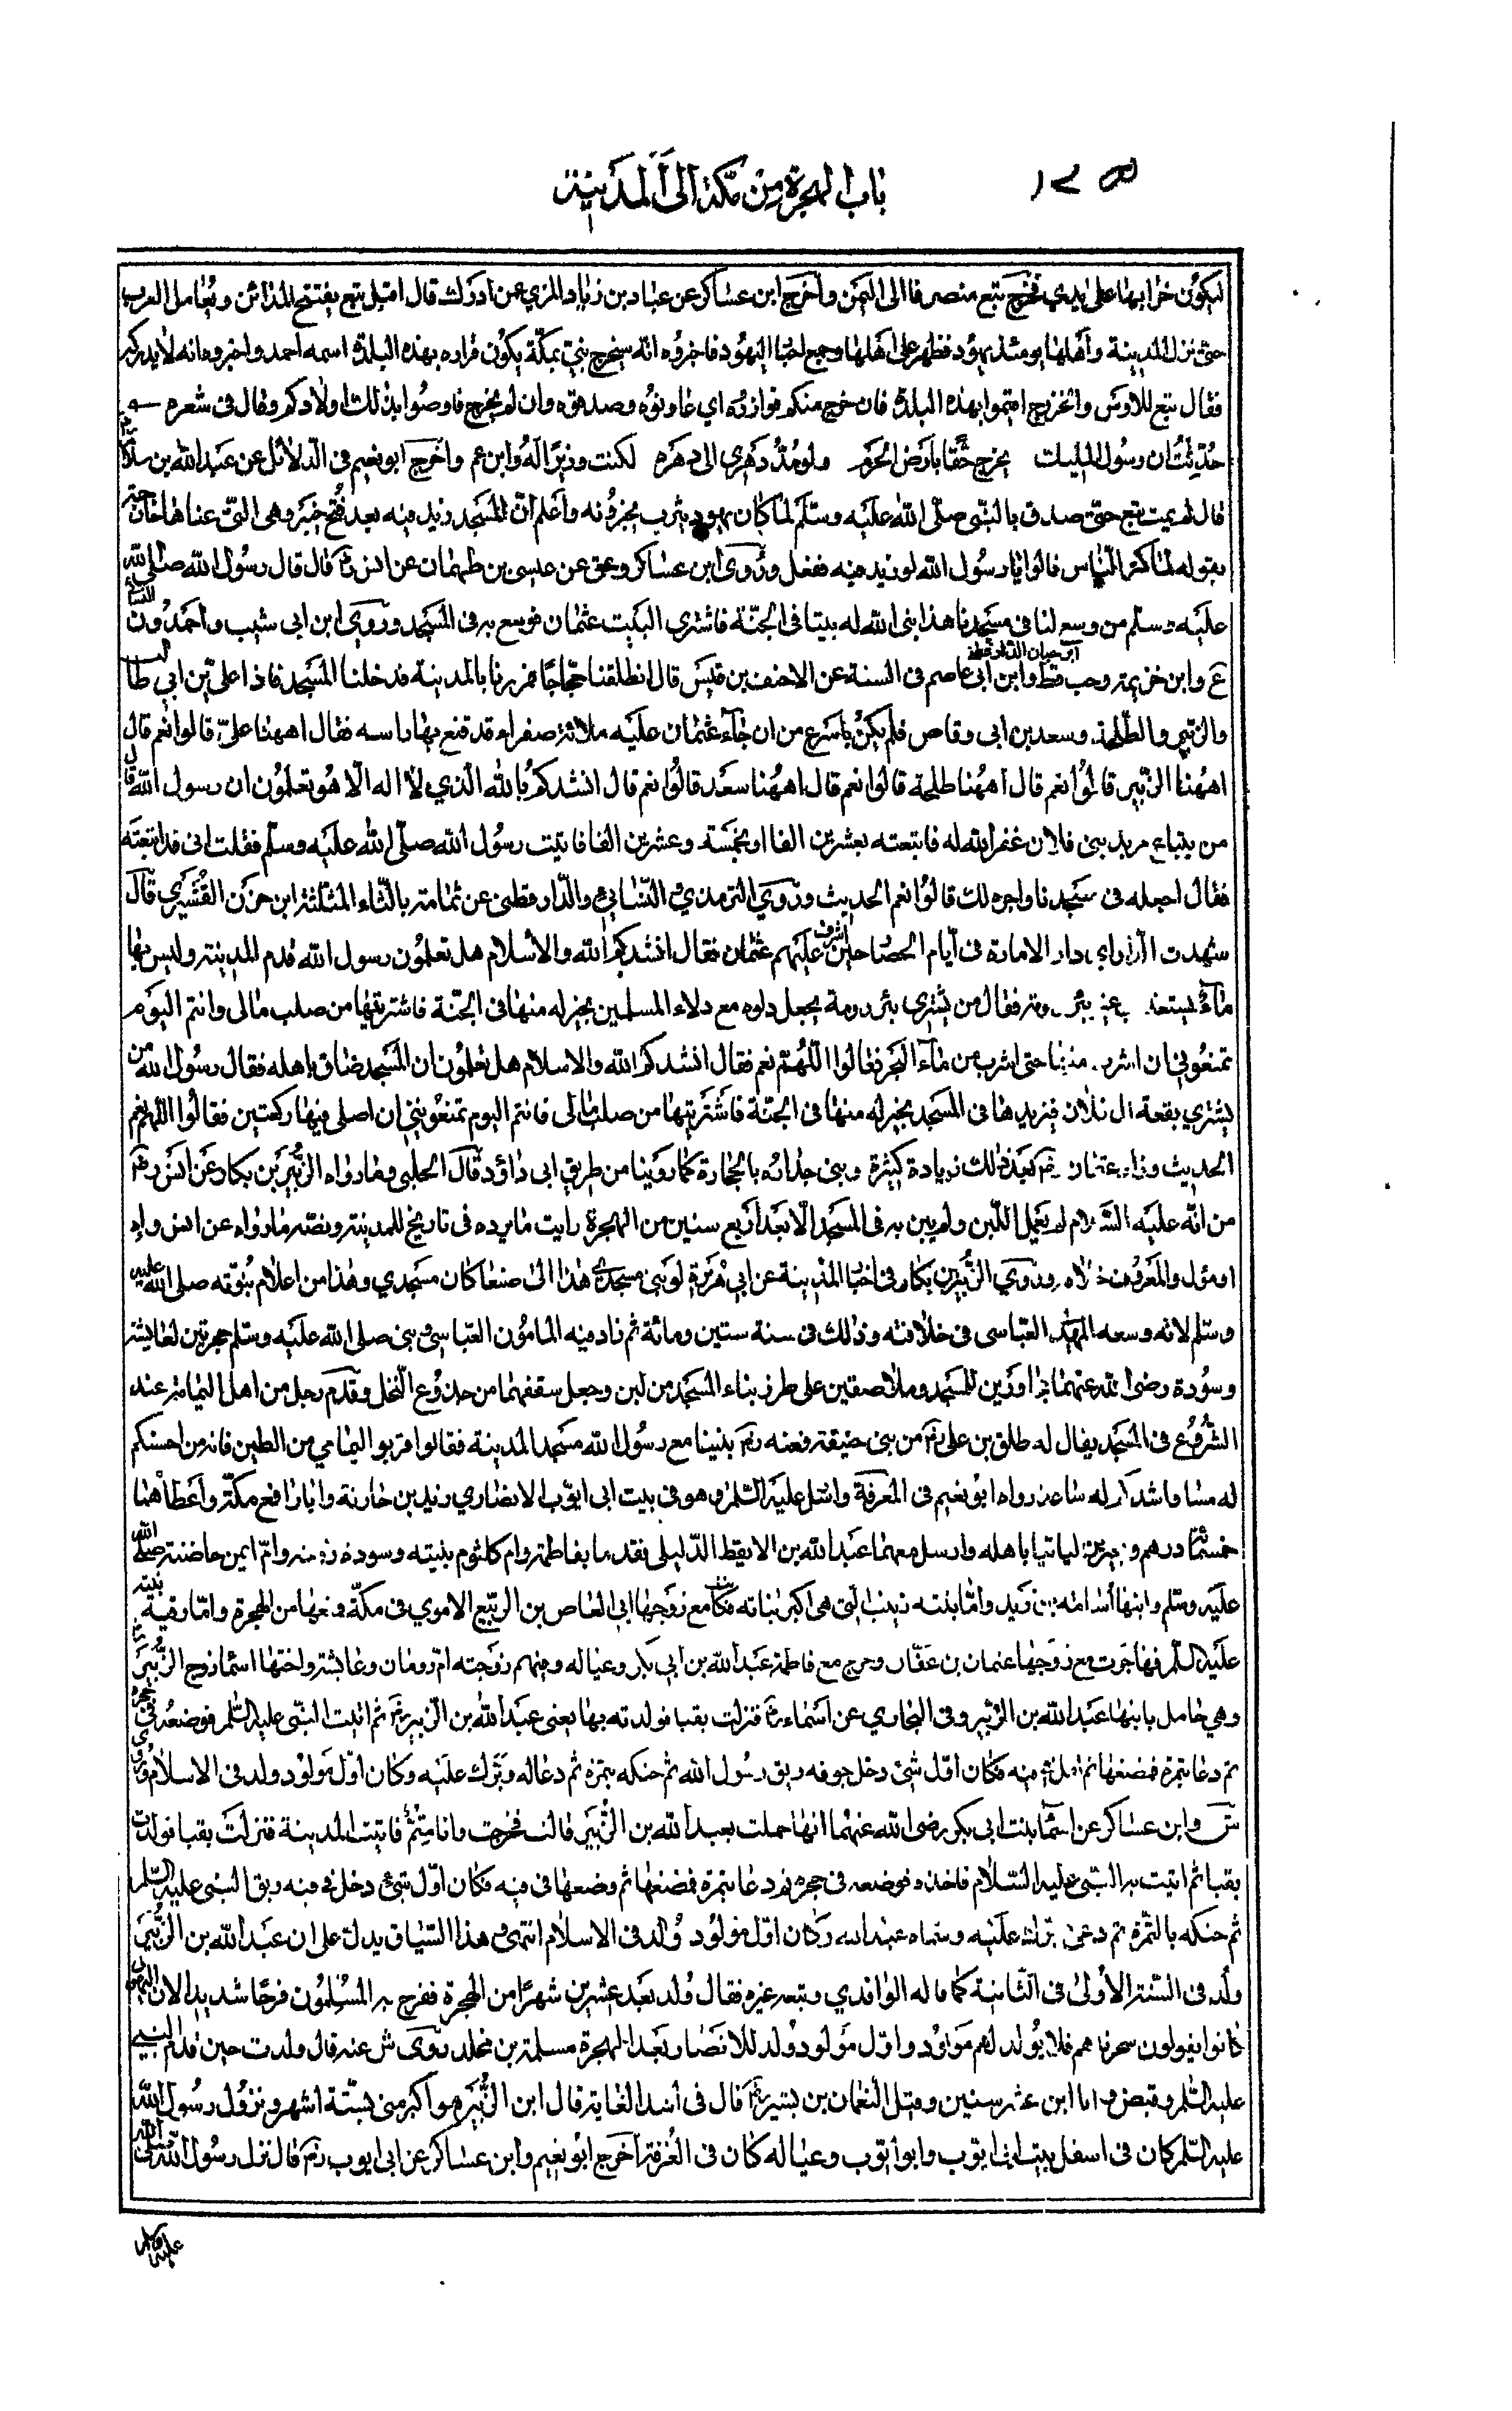 باب الهجرة من مكة الى المدينة
ليكون خرابها على يدي فخرج تبع منصرفا الى اليمن واخرج ابن عساكر عن عباد بن زياد المزي عمن ادرك قال اقبل تبع يفتتح المدائن ويعامل العرب
حتى نزل المدينة واهلها يومئذ يهود فظهر على اهلها وجمع احبار اليهود فاخبروه انه سيخرج نبي بمكة يكون قراره بهذه البلدة اسمه احمد واخبروه انه لا يدركه
فقال تبع للاوس والخزرج اقيموا بهذه البلدة فان خرج منكم فوازروه اي عاونوه وصدقوه وان لم يخرج فاوصوا بذلك اولادكم وقال في شعره
حدثت ان رسول المليك يخرج حقا بارض الحرم ولو مد دهري الى دهره لكنت وزيرا له وابن عم واخرج ابو نعيم في الدلائل عن عبد الله بن سلام
قال لم يمت تبع حتى صدق بالنبي صلى الله عليه وسلم لما كان يهود يثرب يخبرونه واعلم ان المسجد زيد فيه بعد فتح خيبر وهي التي عناها خارجة
بقوله لما كثر الناس قالوا يا رسول الله لو زيد فيه ففعل وروى ابن عساكر وعق عن عيسى بن طهمان عن انس رض قال قال رسول الله صلى الله
عليه وسلم من وسع لنا في مسجدنا هذا بنى الله له بيتا في الجنة فاشترى البيت عثمان فوسع به في المسجد وروى ابن ابي شيب واحمد ون
ع وابن خزيمة وحب قط وابن ابي عاصم في السنة عن الاحنف بن قيس قال انطلقنا حجاجا فمررنا بالمدينة فدخلنا المسجد فاذا علي بن ابي طالب
والزبير والطلحة وسعد بن ابي وقاص فلم يكن باسرع من ان جاء عثمان عليه ملائة صفراء قد قنع بها راسه فقال اههنا علي قالوا نعم قال
اههنا الزبير قالوا نعم قال اههنا طلحة قالوا نعم قال اههنا سعد قالوا نعم قال انشدكم بالله الذي لا اله الا هو تعلمون ان رسول الله قال
من يبتاع مربد بني فلان غفر الله له فابتعته بعشرين الفا او بخمسة وعشرين الفا فاتيت رسول الله صلى الله عليه وسلم فقلت اني قد ابتعته
فقال اجعله في مسجدنا واجره لك قالوا نعم الحديث وروى الترمذي النسائي والدار قطني عن ثمامة بالثاء المثلثة ابن حزن القشيري قال
شهدت الدار اي دار الامارة في ايام الحصار حين اشرف عليهم عثمان فقال انشدكم الله والاسلام هل تعلمون رسول الله قدم المدينة وليس بها
ماء يستعذب غير بئر رومة فقال من يشتري بئر رومة يجعل دلوه مع دلاء المسلمين بخير له منها في الجنة فاشتريتها من صلب مالي وانتم اليوم
تمنعوني ان اشرب منها حتى اشرب من ماء البحر فقالوا اللهم نعم فقال انشدكم الله والاسلام هل تعلمون ان المسجد ضاق باهله فقال رسول الله من
يشتري بقعة ال فلان فيزيدها في المسجد بخير له منها في الجنة فاشتريتها من صلب مالي فانتم اليوم تمنعونني ان اصلي فيها ركعتين فقالوا اللهم نعم
الحديث وزاد عثمان رض بعد ذلك زيادة كثيرة وبنى جداره بالحجارة كما روينا من طريق ابي داؤد قال الحلبي وما رواه الزبير بن بكار عن انس رض
من انه عليه السلام لم يعمل اللبن ولم يبن به في المسجد الا بعد اربع سنين من الهجرة رايت ما يرده في تاريخ للمدينة ونصه ما رواه عن انس واه
او مؤل والمعروف خلافه وروى الزبير بن بكار في اخبار المدينة عن ابي هريرة لو بني مسجدي هذا الى صنعا كان مسجدي وهذا من اعلام نبوته صلى الله عليه
وسلم لانه وسعه المهدي العباسي في خلافته وذلك في سنة ستين ومائة ثم زاد فيه المامون العباسي وبنى صلى الله عليه وسلم حجرتين لعايشة
وسودة رضى الله عنهما مجاورين للمسجد وملاصقين على طرز بناء المسجد من لبن وجعل سقفهما من جذوع النخل وقدم رجل من اهل اليمامة عند
الشروع في المسجد يقال له طلق بن علي رض من بني حنيفة فعنه رض بنينا مع رسول الله مسجد المدينة فقالوا قربوا اليمامي من الطين فانه من احسنكم
له مسا واشدكم له ساعدا رواه ابو نعيم في المعرفة وارسل عليه السلم وهو في بيت ابي ايوب الانصاري زيد بن حارثة وابا رافع مكة واعطاهما
خمسمائة درهم وبعيرين لياتيا باهله وارسل معهما عبد الله بن الاريقط الدليلي فقدما بفاطمة وام كلثوم بنيته وسودة زوجته وام ايمن حاضنته صلى الله
عليه وسلم وابنها اسامة بن زيد واما بنته زينب التي هي اكبر بناته فكانت مع زوجها ابي العاص بن الربيع الاموي في مكة ومنعها من الهجرة واما رقية بنته
عليه السلم فهاجرت مع زوجها عثمان بن عفان وخرج مع فاطمة عبد الله بن ابي بكر وعياله وفيهم زوجته ام رومان وعايشة واختها اسما زوج الزبير
وهي حامل بابنها عبد الله بن الزبير وفي البخاري عن اسماء رض فنزلت بقبا فولدته بها يعني عبد الله بن الزبير رض ثم اتيت النبي عليه السلم فوضعه في حجره
ثم دعا بتمرة فمضغها ثم تفل في فيه فكان اول شئ دخل جوفه ريق رسول الله ثم حنكه بتمرة ثم دعا له وبرك عليه وكان اول مولود ولد في الاسلام وروى
ش وابن عساكر عن اسما بنت ابي بكر رضى الله عنهما انها حملت بعبد الله بن الزبير قالت فخرجت وانا متم فاتيت المدينة فنزلت بقبا فولدت
بقبا ثم اتيت به النبي عليه السلام فاخذه فوضعه في حجره فدعا بتمرة فمضغها ثم وضعها في فيه فكان اول شئ دخل في فيه ريق النبي عليه السلم
ثم حنكه بالتمرة ثم دعى برك عليه وسماه عبد الله وكان اول مولود ولد في الاسلام انتهى وهذا السياق يدل على ان عبد الله بن الزبير
ولد في السنة الاولى في الثانية كما قاله الواقدي وتبعه غيره فقال ولد بعد عشرين شهرا من الهجرة ففرح به المسلمون فرحا شديدا لان اليهود
كانوا يقولون سحرناهم فلا يولد لهم مولود واول مولود ولد للانصار بعد الهجرة مسلمة بن مخلد روى ش عنه قال ولدت حين قدم النبي
عليه السلم وقبض وانا ابن عشر سنين وقيل النعمان بن بشير رض قال في اسد الغابة قال ابن الزبير هو اكبر مني بستة اشهر ونزول رسول الله
عليه السلم كان في اسفل بيت ابي ايوب وابو ايوب وعياله كان في الغرفة اخرج ابو نعيم وابن عساكر عن ابي ايوب رض قال نزل رسول الله صلى الله
عليه وسلم